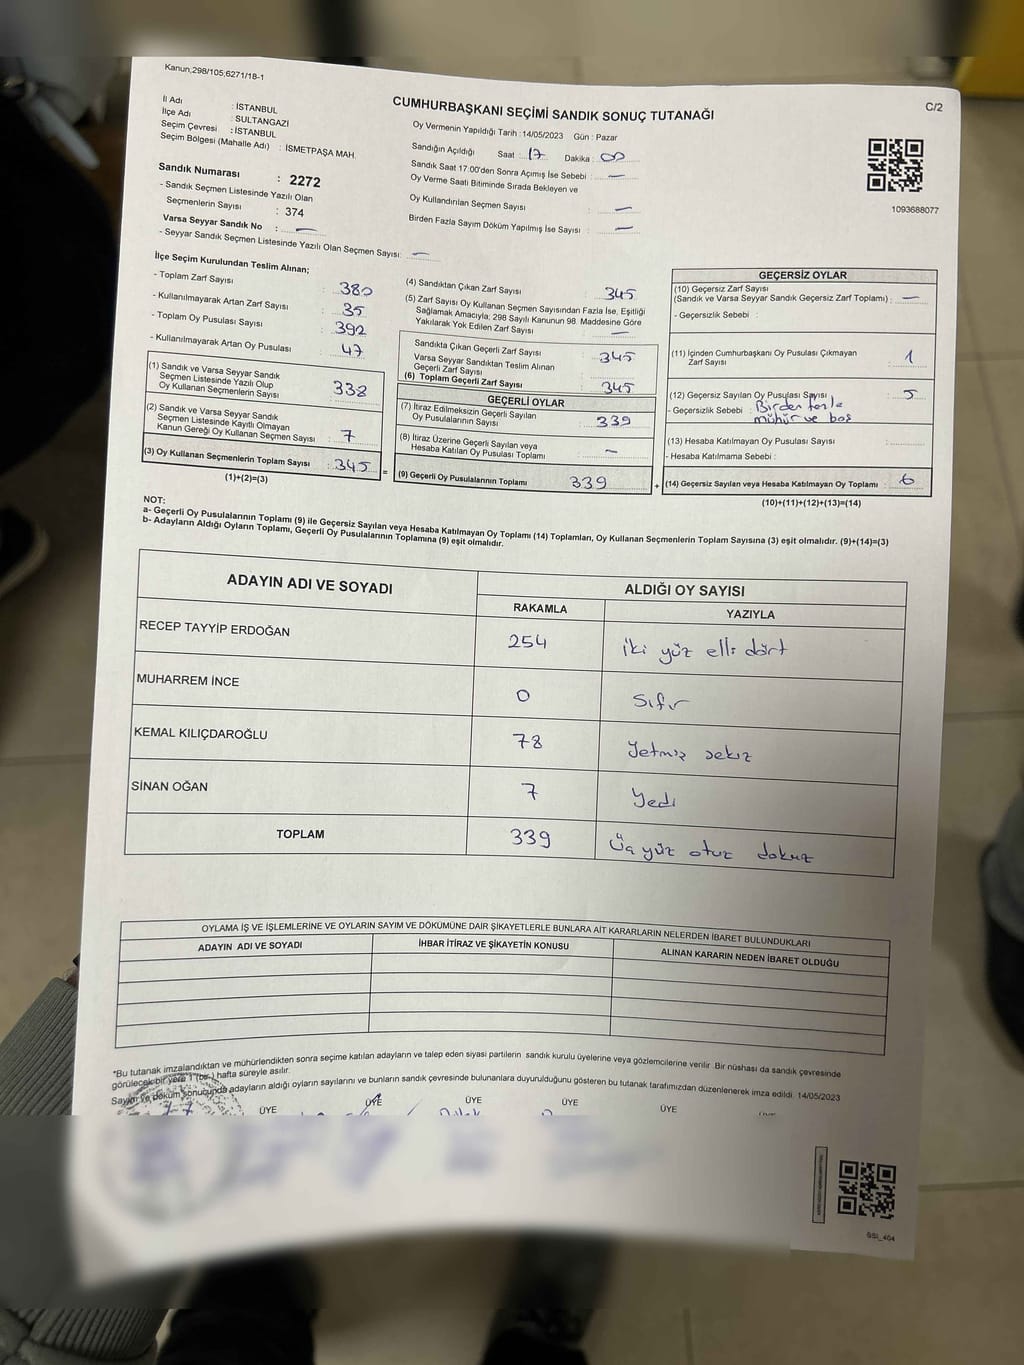 Kanun,298/105;6271/18-1
C/2
CUMHURBAŞKANI SEÇİMİ SANDIK SONUÇ TUTANAĞI
İl Adı : İSTANBUL
İlçe Adı : SULTANGAZİ
Seçim Çevresi : İSTANBUL
Seçim Bölgesi (Mahalle Adı) : İSMETPAŞA MAH.
Sandık Numarası : 2272
- Sandık Seçmen Listesinde Yazılı Olan
Seçmenlerin Sayısı : 374
Varsa Seyyar Sandık No : —
- Seyyar Sandık Seçmen Listesinde Yazılı Olan Seçmen Sayısı: —
Oy Vermenin Yapıldığı Tarih : 14/05/2023 Gün : Pazar
Sandığın Açıldığı Saat : 17 Dakika : 00
Sandık Saat 17.00'den Sonra Açımış İse Sebebi : —
Oy Verme Saati Bitiminde Sırada Bekleyen ve
Oy Kullandırılan Seçmen Sayısı : —
Birden Fazla Sayım Döküm Yapılmış İse Sayısı : —
1093688077
İlçe Seçim Kurulundan Teslim Alınan;
- Toplam Zarf Sayısı : 380
- Kullanılmayarak Artan Zarf Sayısı : 35
- Toplam Oy Pusulası Sayısı : 392
- Kullanılmayarak Artan Oy Pusulası : 47
(1) Sandık ve Varsa Seyyar Sandık
Seçmen Listesinde Yazılı Olup
Oy Kullanan Seçmenlerin Sayısı : 338
(2) Sandık ve Varsa Seyyar Sandık
Seçmen Listesinde Kayıtlı Olmayan
Kanun Gereği Oy Kullanan Seçmen Sayısı : 7
(3) Oy Kullanan Seçmenlerin Toplam Sayısı : 345 =
(1)+(2)=(3)
(4) Sandıktan Çıkan Zarf Sayısı : 345
(5) Zarf Sayısı Oy Kullanan Seçmen Sayısından Fazla İse, Eşitliği
Sağlamak Amacıyla; 298 Sayılı Kanunun 98. Maddesine Göre
Yakılarak Yok Edilen Zarf Sayısı : —
Sandıkta Çıkan Geçerli Zarf Sayısı : 345
Varsa Seyyar Sandıktan Teslim Alınan
Geçerli Zarf Sayısı
(6) Toplam Geçerli Zarf Sayısı : 345
GEÇERLİ OYLAR
(7) İtiraz Edilmeksizin Geçerli Sayılan
Oy Pusulalarının Sayısı : 339
(8) İtiraz Üzerine Geçerli Sayılan veya
Hesaba Katılan Oy Pusulası Toplamı : —
(9) Geçerli Oy Pusulalarının Toplamı 339 +
GEÇERSİZ OYLAR
(10) Geçersiz Zarf Sayısı
(Sandık ve Varsa Seyyar Sandık Geçersiz Zarf Toplamı) : —
- Geçersizlik Sebebi :
(11) İçinden Cumhurbaşkanı Oy Pusulası Çıkmayan
Zarf Sayısı : 1
(12) Geçersiz Sayılan Oy Pusulası Sayısı : 5
- Geçersizlik Sebebi : Birden fazla
mühür ve boş
(13) Hesaba Katılmayan Oy Pusulası Sayısı :
- Hesaba Katılmama Sebebi :
(14) Geçersiz Sayılan veya Hesaba Katılmayan Oy Toplamı : 6
(10)+(11)+(12)+(13)=(14)
NOT:
a- Geçerli Oy Pusulalarının Toplamı (9) ile Geçersiz Sayılan veya Hesaba Katılmayan Oy Toplamı (14) Toplamları, Oy Kullanan Seçmenlerin Toplam Sayısına (3) eşit olmalıdır. (9)+(14)=(3)
b- Adayların Aldığı Oyların Toplamı, Geçerli Oy Pusulalarının Toplamına (9) eşit olmalıdır.
ADAYIN ADI VE SOYADI ALDIĞI OY SAYISI
RAKAMLA YAZIYLA
RECEP TAYYİP ERDOĞAN 254 iki yüz elli dört
MUHARREM İNCE 0 Sıfır
KEMAL KILIÇDAROĞLU 78 Yetmiş sekiz
SİNAN OĞAN 7 Yedi
TOPLAM 339 Üç yüz otuz dokuz
OYLAMA İŞ VE İŞLEMLERİNE VE OYLARIN SAYIM VE DÖKÜMÜNE DAİR ŞİKAYETLERLE BUNLARA AİT KARARLARIN NELERDEN İBARET BULUNDUKLARI
ADAYIN ADI VE SOYADI İHBAR İTİRAZ VE ŞİKAYETİN KONUSU ALINAN KARARIN NEDEN İBARET OLDUĞU
*Bu tutanak imzalandıktan ve mühürlendikten sonra seçime katılan adayların ve talep eden siyasi partilerin sandık kurulu üyelerine veya gözlemcilerine verilir. Bir nüshası da sandık çevresinde
görülecek bir yere 1 (bir) hafta süreyle asılır.
Sayım ve döküm sonucunda adayların aldığı oyların sayılarını ve bunların sandık çevresinde bulunanlara duyurulduğunu gösteren bu tutanak tarafımızdan düzenlenerek imza edildi. 14/05/2023
ÜYE ÜYE ÜYE ÜYE ÜYE
GSI_404